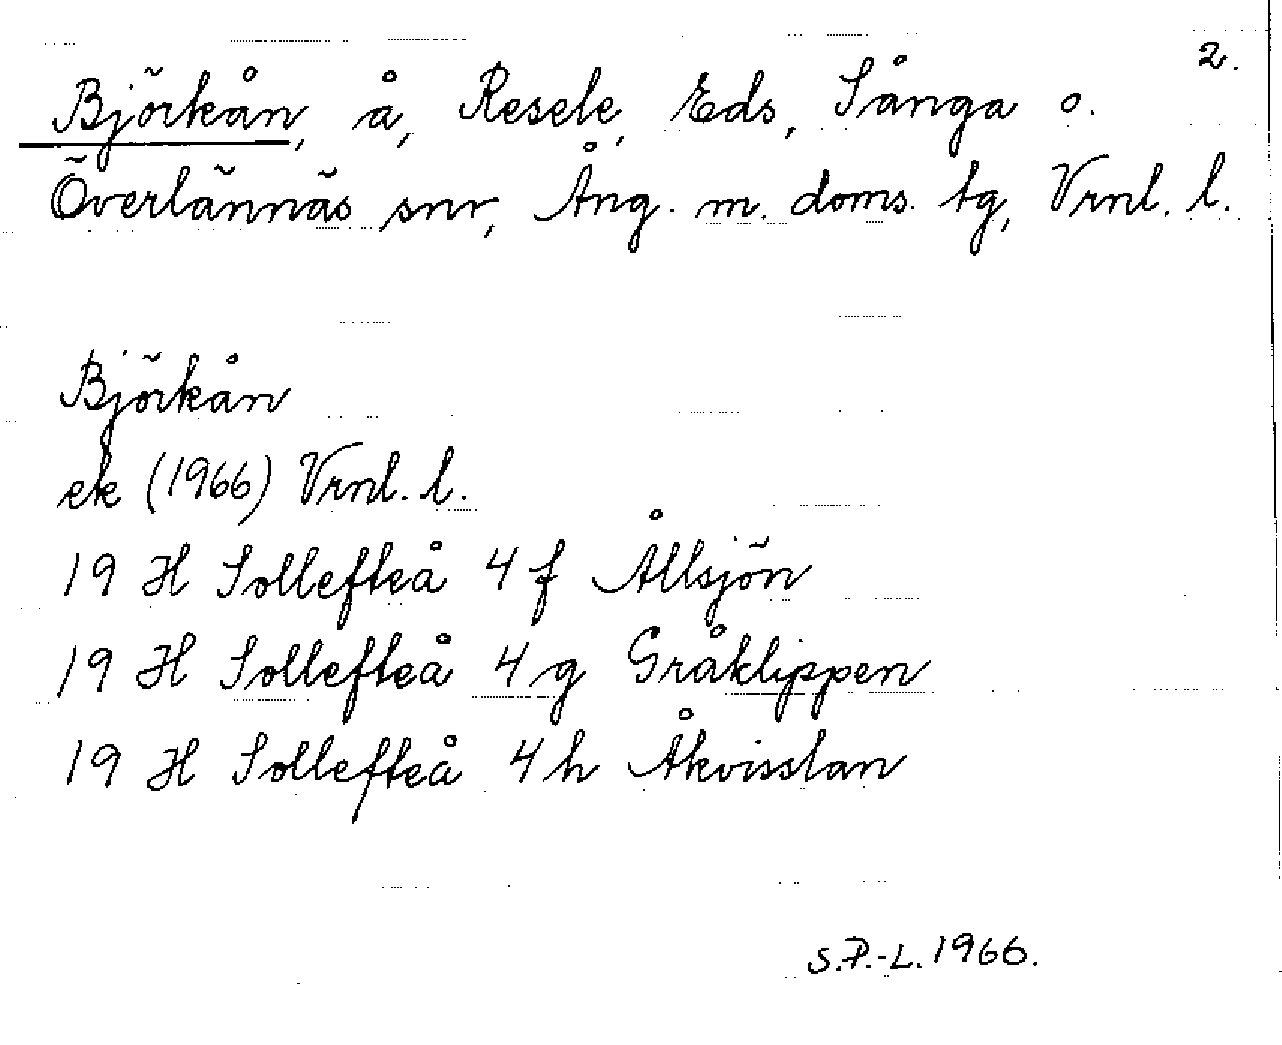 2.
Björkån, å, Resele, Eds, Sånga o.
Överlännäs snr, Ång. m. doms. tg, Vrnl. l.
Björkån
ek (1966) Vrnl. l.
19 H Sollefteå 4 f Ållsjön
19 H Sollefteå 4 g Gråklippen
19 H Sollefteå 4 h Åkvisslan
S.P.-L. 1966.